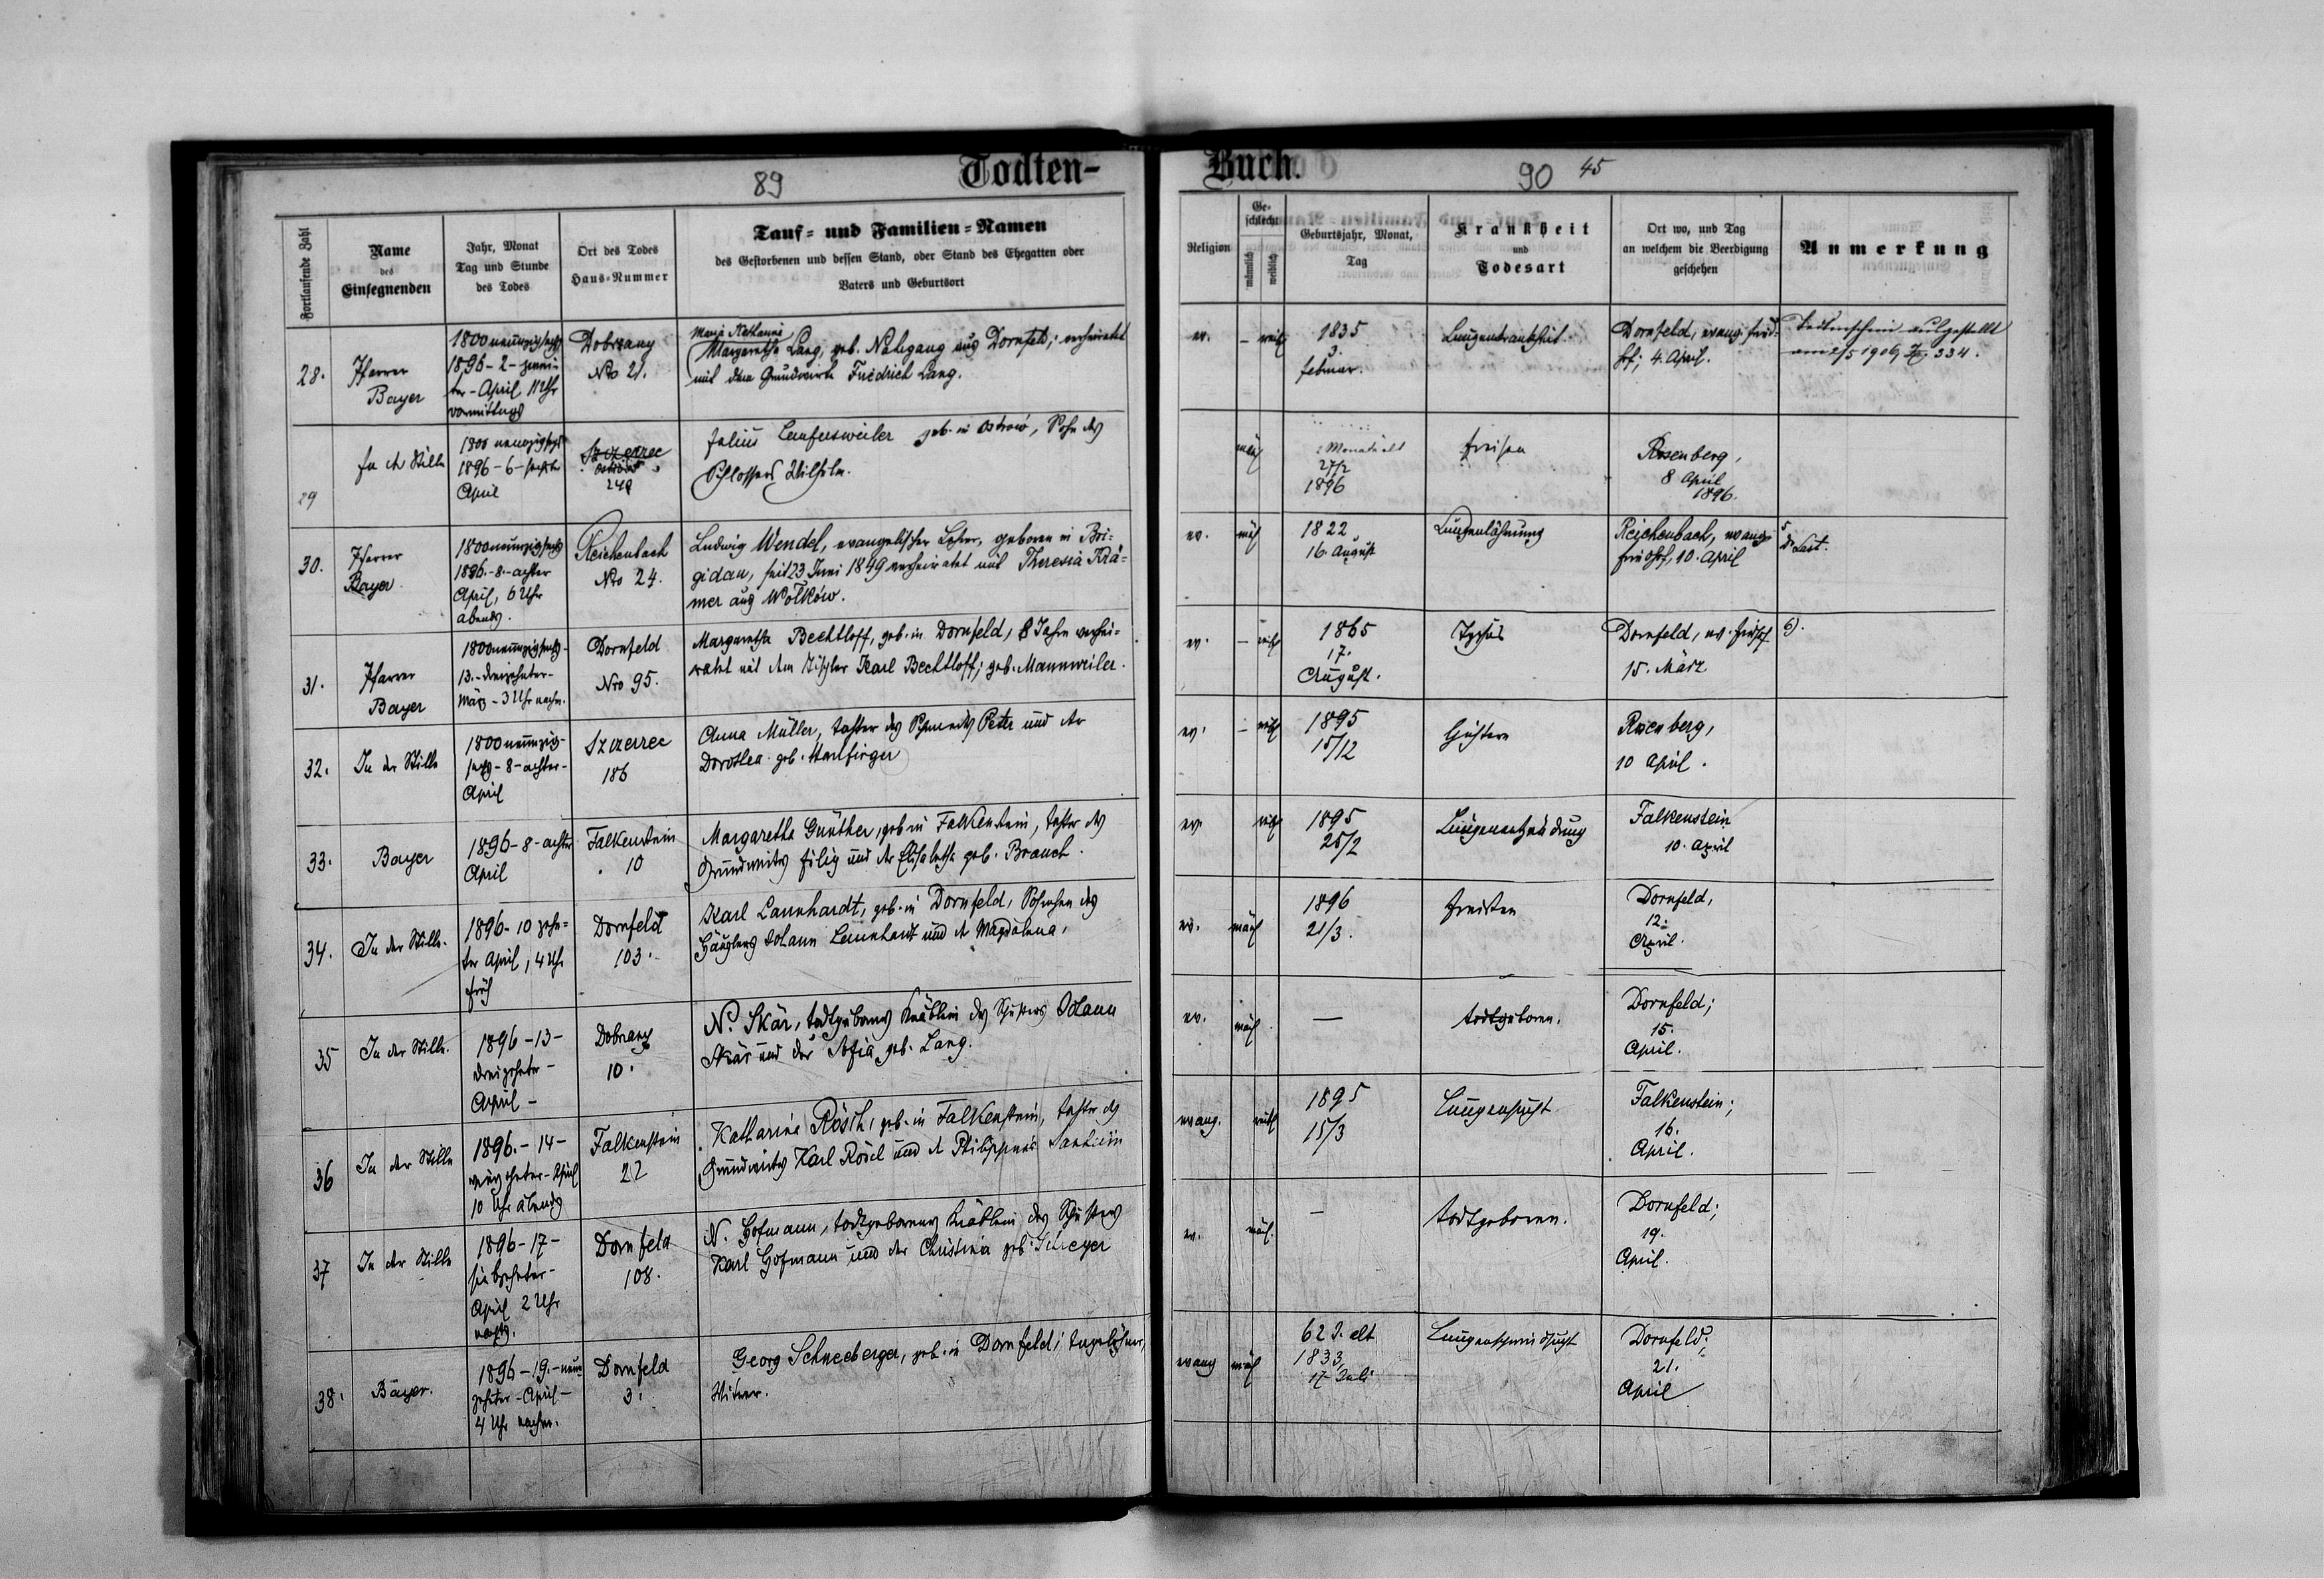 89
Todten-
Buch.
90 45
Fortlaufende Zahl
Name
des
Einsegnenden
Jahr, Monat
Tag und Stunde
des Todes
Ort des Todes
Haus-Nummer
Tauf- und Familien-Namen
des Gestorbenen und dessen Stand, oder Stand des Ehegatten oder
Vaters und Geburtsort
Religion
Ge-
schlecht
männlich
weiblich
Geburtsjahr, Monat,
Tag
Krankheit
und
Todesart
Ort wo, und Tag
an welchem die Beerdigung
geschehen
Anmerkung
28.
Pfarrer
Bayer
1800neunzigsechs
1896-2-zwei-
ter-April 11 Uhr
vormittags
Dobrzany
Nro 21.
Margaretha Lang, geb. Nahgang aus Dornfeld; verheiratet
mit dem Grundwirt Friedrich Lang.
ev.
– weib
1835
3.
Februar.
Lungenkrankheit.
Dornfeld, evang. Fried-
hof; 4. April.
Todtenschein ausgestellt
am 2/5 1906, Z. 334.
29
In der Stille
1800 neunzigsechs
1896-6-sechster
April
Szczerzec
Ostrów
249
Julius Laufersweiler geb. in Ostrów, Sohn des
Schlossers Wilhelm.
män
2 Monate alt
27/2
1896
Fraisen
Rosenberg,
8 April
1896.
30.
Pfarrer
Bayer
1800neunzigsechs
1896.-8.-achter
April, 6 Uhr
abends.
Reichenbach
Nro 24.
Ludwig Wendel, evangelischer Lehrer, geboren in Bri-
gidau, seit 23 Juni 1849 verheiratet mit Theresia Krä-
mer aus Wolków.
ev.
män
1822
16. August
Lungenlähmung
Reichenbach, evang.
Friedhof, 10. April
31.
Pfarrer
Bayer
1800neunzigsechs-
13.-dreizehnter-
März-3 Uhr nachm.
Dornfeld
Nro 95.
Margaretha Bechtloff, geb. in Dornfeld, 8 Jahre verhei-
ratet mit dem Tischler Karl Bechtloff; geb. Mannweiler.
ev.
– weib
1865
17.
August.
Typhus
Dornfeld, ev. Friedhof
15. März
6).
32.
In der Stille
1800neunzig-
sechs-8-achter-
April
Szczerzec
186
Anna Müller, Tochter des Schmieds Peter und der
Dorothea geb. Harlfinger
ev.
– weib
1895
15/12
Husten
Rosenberg,
10 April.
33.
Bayer
1896-8-achter
April
Falkenstein
10
Margaretha Günther, geb. in Falkenstein, Tochter des
Grundwirts Filip und der Elisabetha geb. Brauch.
ev.
weib
1895
25/2
Lungenentzündung
Falkenstein
10. April
34.
In der Stille.
1896-10 zehn-
ter April, 4 Uhr
früh
Dornfeld
103.
Karl Launhardt, geb. in Dornfeld, Söhnchen des
Häuslers Johann Launhardt und der Magdalena,
ev.
män
1896
21/3.
Fraisen
Dornfeld,
12.
April.
35
In der Stille.
1896-13-
dreizehnter-
April-
Dobrzany
10.
N. Skär, todtgebornes Knäblein des Schusters Johann
Skär und der Sofia geb. Lang.
ev.
män.
—
todtgeboren.
Dornfeld;
15.
April.
36
In der Stille
1896.-14-
vierzehnter-April
10 Uhr abends
Falkenstein
22
Katharina Rösch, geb. in Falkenstein, Tochter des
Grundwirts Karl Rösch und der Philippine
evang.
weib
1895
15/3
Lungensucht
Falkenstein;
16.
April.
37
In der Stille
1896-17-
siebzehnter-
April 2 Uhr
nachts.
Dornfeld
108.
N. Hofmann, todtgeborenes Knäblein des Schusters
Karl Hofmann und der Christina geb. Schreyer
ev.
män.
—
todtgeboren.
Dornfeld;
19.
April.
38.
Bayer.
1896-19.-neun-
zehnter-April-
4 Uhr nachm.
Dornfeld
3.
Georg Schneeberger, geb. in Dornfeld; Tagelöhner,
Witwer.
evang
män
62 J. alt
1833,
17 Juli
Lungenschwindsucht
Dornfeld;
21.
April